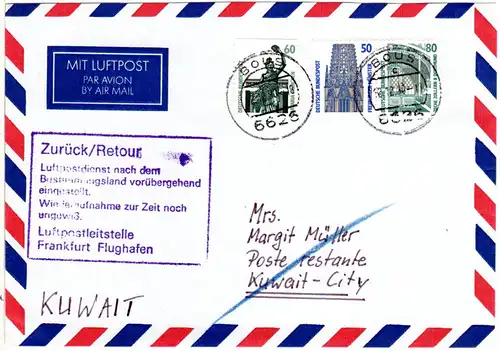 MIT LUFTPOST
PAR AVION
BY AIR MAIL
60
50
80
DEUTSCHE BUNDESPOST
BOUS
6626
BOUS
6626
Zurück/Retour
Luftpostdienst nach dem
Bestimmungsland vorübergehend
eingestellt.
Wiederaufnahme zur Zeit noch
ungewiß.
Luftpostleitstelle
Frankfurt Flughafen
Mrs.
Margit Müller
Poste restante
Kuwait-City
KUWAIT